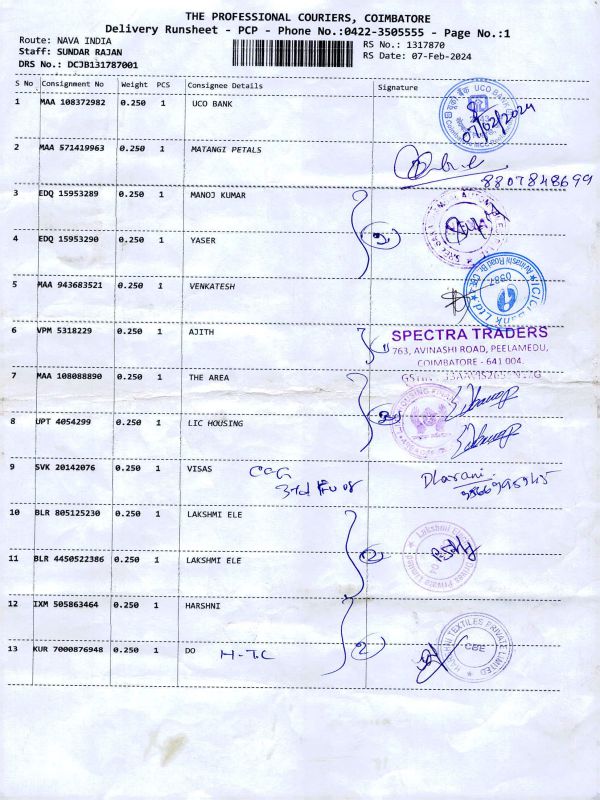 THE PROFESSIONAL COURIERS, COIMBATORE
Delivery Runsheet - PCP - Phone No.:0422-3505555 - Page No.:1
Route: NAVA INDIA
Staff: SUNDAR RAJAN
DRS No.: DCJB131787001
RS No.: 1317870
RS Date: 07-Feb-2024
S No Consignment No Weight PCS Consignee Details Signature
1 MAA 108372982 0.250 1 UCO BANK
UCO BANK
07/02/2024
2 MAA 571419963 0.250 1 MATANGI PETALS
8807848699
3 EDQ 15953289 0.250 1 MANOJ KUMAR
4 EDQ 15953290 0.250 1 YASER
5 MAA 943683521 0.250 1 VENKATESH
ICICI Bank Ltd
Avinashi Road Br. CBE
0987
6 VPM 5318229 0.250 1 AJITH
SPECTRA TRADERS
763, AVINASHI ROAD, PEELAMEDU,
COIMBATORE - 641 004.
7 MAA 108088890 0.250 1 THE AREA
8 UPT 4054299 0.250 1 LIC HOUSING
9 SVK 20142076 0.250 1 VISAS
Dharani
10 BLR 805125230 0.250 1 LAKSHMI ELE
11 BLR 4450522386 0.250 1 LAKSHMI ELE
2
12 IXM 505863464 0.250 1 HARSHNI
13 KUR 7000876948 0.250 1 DO H-T.C
2
HARSHNI TEXTILES PRIVATE LIMITED
CBE